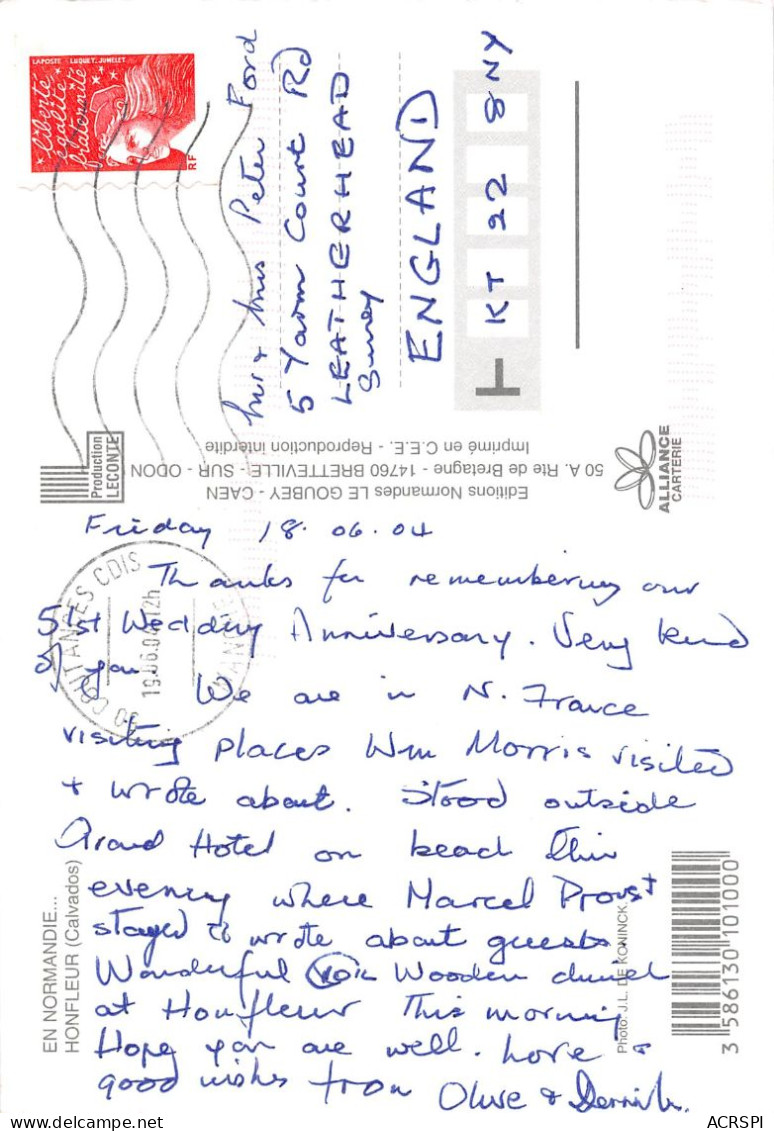 LAPOSTE LUQUET, JUMELET
liberté
égalité
fraternité
RF
Mr & Mrs Peter Ford
5 Yarm Court Rd
LEATHERHEAD
Surrey
ENGLAND
KT 22 8NY
Production
LECONTE
Editions Normandes LE GOUBEY - CAEN
50 A. Rte de Bretagne - 14760 BRETTEVILLE - SUR - ODON
Imprimé en C.E.E. - Reproduction interdite
ALLIANCE
CARTERIE
50 COUTANCES CDIS
19.06.04 12h
MANCHE
Friday 18.06.04
Thanks for remembering our
51st Wedding Anniversary. Very kind
of you We are in N. France
visiting places Wm Morris visited
+ wrote about. Stood outside
Grand Hotel on beach this
evening where Marcel Proust
stayed & wrote about guests
Wonderful Wooden
at Honfleur This morning
Hope you are well. Love &
good wishes from Olive &
EN NORMANDIE...
HONFLEUR (Calvados)
Photo: J.L. DE KONINCK.
3 586130 101000
ACRSPI